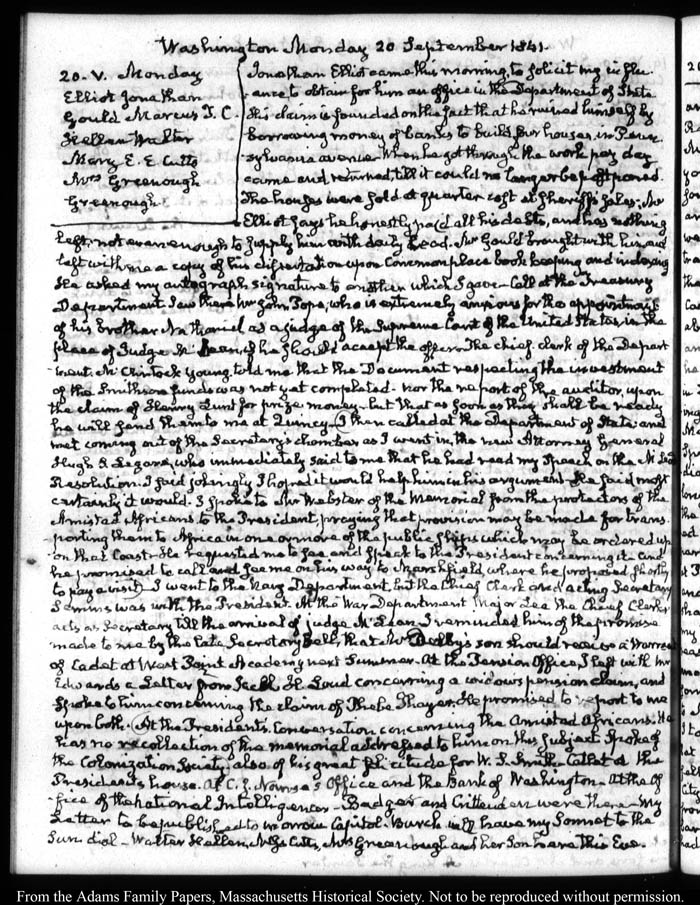 Washington Monday 20 September 1841.
20. V. Monday
Elliot Jonathan
Gould Marcus T. C.
Hellen Walter
Mary E. E. Cutts
Mrs Greenough
Greenough
Jonathan Elliot came this morning, to solicit my influ-
ence to obtain for him an office in the Department of State
His claim is founded on the fact that he ruined himself by
borrowing money of banks to build four houses, in Penn-
sylvania avenue. When he got through the work pay day
came and returned till it could no longer be postponed.
The houses were sold at quarter cost at sheriff's sales. Mr
Elliot says he honestly paid all his debts, and has nothing
left, not even enough to supply him with daily bread. Mr Gould brought with him, and
left with me a copy of his dissertation upon Commonplace book keeping and indexing
He asked my autograph signature to another which I gave - Call at the Treasury
Department. I saw there Mr John Pope, who is extremely anxious for the appointment
of his brother Nathaniel as a judge of the Supreme Court of the United States in the
place of Judge Mc Lean if he should accept the office. The chief clerk of the Depart
ment. Mc Clintock Young, told me that the Document respecting the investment
of the Smithson funds was not yet completed - nor the report of the auditor, upon
the claim of Henry Lunt for prize money - but that as soon as they shall be ready
he will send them to me at Quincy. I then called at the Department of State; and
met coming out of the Secretary's chamber, as I went in, the new Attorney General
Hugh S. Legaré, who immediately said to me that he had read my Speech on the
Resolution. I said jokingly I hoped it would help him in his argument - He said most
certainly it would. I spoke to Mr Webster of the Memorial from the protectors of the
Amistad Africans to the President, praying that provision may be made for trans-
porting them to Africa in one or more of the public ships which may be ordered up
on that Coast - He requested me to see and speak to the President concerning it and
he promised to call and see me on his way to Marshfield where he proposed shortly
to pay a visit. I went to the Navy Department, but the Chief Clerk and acting Secretary
Simms was with the President. At the War Department Major Lee the Chief Clerk
acts as Secretary till the arrival of judge Mc Lean. I reminded him of the promise
made to me by the late Secretary Bell, that Mr son should receive a Warrant
of Cadet at West Point Academy next Summer. At the Pension Office, I left with Mr
Edwards a Letter from Loud concerning a widow's pension claim, and
spoke to him concerning the claim of Phebe Thayer. He promised to report to me
upon both. At the President's. Conversation concerning the Amistad Africans. He
has no recollection of the memorial addressed to him on this subject. Spoke of
the Colonization Society, also of his great solicitude for W. S. Smith. Called at the
President's house. At C. J. Nourse's Office and the Bank of Washington - At the Of
fice of the National Intelligencer - Badger and Crittenden were there - My
Letter to be published to morrow. Capitol. Burch will have my Sonnet to the
Sun dial - Walter Hellen, Cutts, Mrs Greenough and her Son here this Eve.
From the Adams Family Papers, Massachusetts Historical Society. Not to be reproduced without permission.